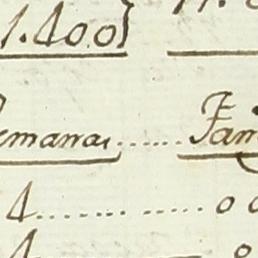 1.400}
emanas ...... Fam
4 ........ ...... 0 0
4